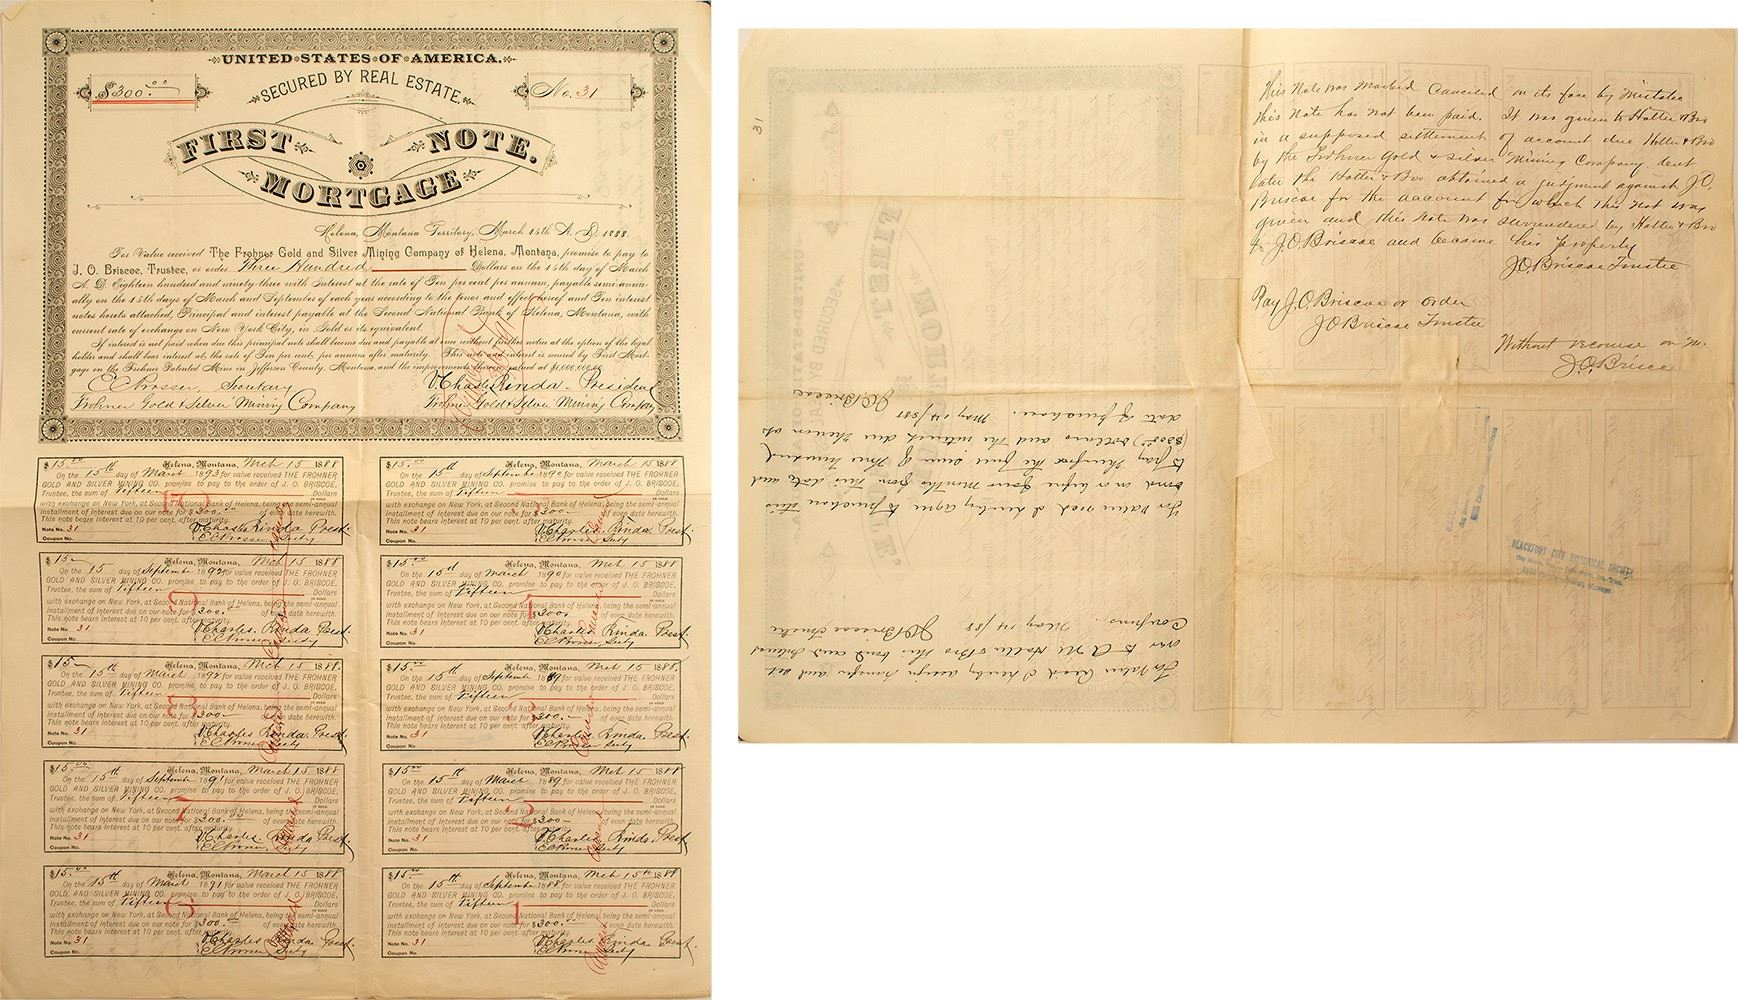 UNITED STATES OF AMERICA.
SECURED BY REAL ESTATE.
$300.00
No. 31
FIRST NOTE.
MORTGAGE
Helena, Montana Territory, March 15th A. D. 1888.
For Value received The Frohner Gold and Silver Mining Company of Helena, Montana, promise to pay to
J. O. Briscoe, Trustee, or order Three Hundred Dollars on the 15th day of March
A. D. Eighteen hundred and ninety-three with Interest at the rate of Ten per cent per annum, payable semi-annu-
ally on the 15th days of March and September of each year according to the tenor and effect hereof and Ten interest
notes hereto attached, Principal and interest payable at the Second National Bank of Helena, Montana, with
current rate of exchange on New York City, in Gold or its equivalent.
If interest is not paid when due this principal note shall become due and payable at once without further notice at the option of the legal
holder and shall bear interest at the rate of Ten per cent. per annum after maturity. This note and interest is secured by First Mort-
gage on the Frohner Patented Mine in Jefferson County, Montana, and the improvements thereon valued at $1,000,000.00
Secretary
V. Charles Rinda President
Frohner Gold & Silver Mining Company
Frohner Gold & Silver Mining Company
$15.00 Helena, Montana, Mch 15 1888
On the 15th day of March 1893 for value received THE FROHNER
GOLD AND SILVER MINING CO. promise to pay to the order of J. O. BRISCOE,
Trustee, the sum of Fifteen Dollars
IN GOLD
with exchange on New York, at Second National Bank of Helena, being the semi-annual
installment of Interest due on our note for $300.— of even date herewith.
This note bears Interest at 10 per cent. after maturity.
Note No. 31 V. Charles Rinda Prest.
Coupon No. Secty
$15.00 Helena, Montana, March 15 1888
On the 15th day of September 1890 for value received THE FROHNER
GOLD AND SILVER MINING CO. promise to pay to the order of J. O. BRISCOE,
Trustee, the sum of Fifteen Dollars
IN GOLD
with exchange on New York, at Second National Bank of Helena, being the semi-annual
installment of Interest due on our note for $300— of even date herewith.
This note bears Interest at 10 per cent. after maturity.
Note No. 31 V. Charles Rinda Prest.
Coupon No. Secty
$15— Helena, Montana, Mch 15 1888
On the 15 day of September 1892 for value received THE FROHNER
GOLD AND SILVER MINING CO. promise to pay to the order of J. O. BRISCOE,
Trustee, the sum of Fifteen Dollars
IN GOLD
with exchange on New York, at Second National Bank of Helena, being the semi-annual
installment of Interest due on our note for $300. of even date herewith.
This note bears Interest at 10 per cent. after maturity.
Note No. 31 V. Charles Rinda Prest.
Coupon No. Secty
$15.00 Helena, Montana, Mch 15 1888
On the 15th day of March 1890 for value received THE FROHNER
GOLD AND SILVER MINING CO. promise to pay to the order of J. O. BRISCOE,
Trustee, the sum of Fifteen Dollars
IN GOLD
with exchange on New York, at Second National Bank of Helena, being the semi-annual
installment of Interest due on our note for $300. of even date herewith.
This note bears Interest at 10 per cent. after maturity.
Note No. 31 V. Charles Rinda Prest.
Coupon No. Secty
$15— Helena, Montana, Mch 15 1888.
On the 15th day of March 1892 for value received THE FROHNER
GOLD AND SILVER MINING CO. promise to pay to the order of J. O. BRISCOE,
Trustee, the sum of Fifteen Dollars
IN GOLD
with exchange on New York, at Second National Bank of Helena, being the semi-annual
installment of Interest due on our note for $300— of even date herewith.
This note bears Interest at 10 per cent. after maturity.
Note No. 31 V. Charles Rinda Prest.
Coupon No. Secty
$15.— Helena, Montana, Mch 15 1888.
On the 15th day of September 1889 for value received THE FROHNER
GOLD AND SILVER MINING CO. promise to pay to the order of J. O. BRISCOE,
Trustee, the sum of Fifteen Dollars
IN GOLD
with exchange on New York, at Second National Bank of Helena, being the semi-annual
installment of Interest due on our note for $300.— of even date herewith.
This note bears Interest at 10 per cent. after maturity.
Note No. 31 V. Charles Rinda. Prest.
Coupon No. Secty
$15.00 Helena, Montana, March 15 1888
On the 15th day of September 1891 for value received THE FROHNER
GOLD AND SILVER MINING CO. promise to pay to the order of J. O. BRISCOE,
Trustee, the sum of Fifteen Dollars
IN GOLD
with exchange on New York, at Second National Bank of Helena, being the semi-annual
installment of Interest due on our note for $300.00 of even date herewith.
This note bears Interest at 10 per cent. after maturity.
Note No. 31 V. Charles Rinda Prest.
Coupon No. Secty
$15.00 Helena, Montana, Mch 15 1888
On the 15th day of March 1889 for value received THE FROHNER
GOLD AND SILVER MINING CO. promise to pay to the order of J. O. BRISCOE,
Trustee, the sum of Fifteen Dollars
IN GOLD
with exchange on New York, at Second National Bank of Helena, being the semi-annual
installment of Interest due on our note for $300— of even date herewith.
This note bears Interest at 10 per cent. after maturity.
Note No. 31 V. Charles Rinda, Prest.
Coupon No. Secty
$15.00 Helena, Montana, March 15 1888
On the 15th day of March 1891 for value received THE FROHNER
GOLD AND SILVER MINING CO. promise to pay to the order of J. O. BRISCOE,
Trustee, the sum of Fifteen Dollars
IN GOLD
with exchange on New York, at Second National Bank of Helena, being the semi-annual
installment of Interest due on our note for $300— of even date herewith.
This note bears Interest at 10 per cent. after maturity.
Note No. 31 V. Charles Rinda Prest.
Coupon No. Secty
$15.00 Helena, Montana, Mch 15th 1888
On the 15th day of September 1888 for value received THE FROHNER
GOLD AND SILVER MINING CO. promise to pay to the order of J. O. BRISCOE,
Trustee, the sum of Fifteen Dollars
IN GOLD
with exchange on New York, at Second National Bank of Helena, being the semi-annual
installment of Interest due on our note for $300.— of even date herewith.
This note bears Interest at 10 per cent. after maturity.
Note No. 31 V. Charles Rinda Prest.
Coupon No. Secty
31
This Note was Marked Canceled on its face by Mistake
this Note has not been paid. It was given to Holter & Bro
in a supposed settlement of account due Holter & Bro
by the Frohner Gold & Silver Mining Company. but
later the Holter & Bro obtained a judgment against J.O.
Briscoe for the account for which this not was
given and this Note was surrendered by Holter & Bro
to J.O. Briscoe and became his property
J.O. Briscoe Trustee
Pay J.O. Briscoe or order
J O Briscoe Trustee
Without recourse on me
J.O. Briscoe
BLACKFOOT CITY HISTORICAL SOCIETY
For Value recd I hereby agree to purchase this
bond on or before four Months from this date and
to pay therefor the full sum of Three hundred
($300.00) dollars and the interest due thereon at
date of purchase. May 14/88
J.O. Briscoe
For Value Recd I hereby assign transfer and set
over to A M Holter & Bro this bond and interest
Coupons. May 14/88 J.O. Briscoe Trustee